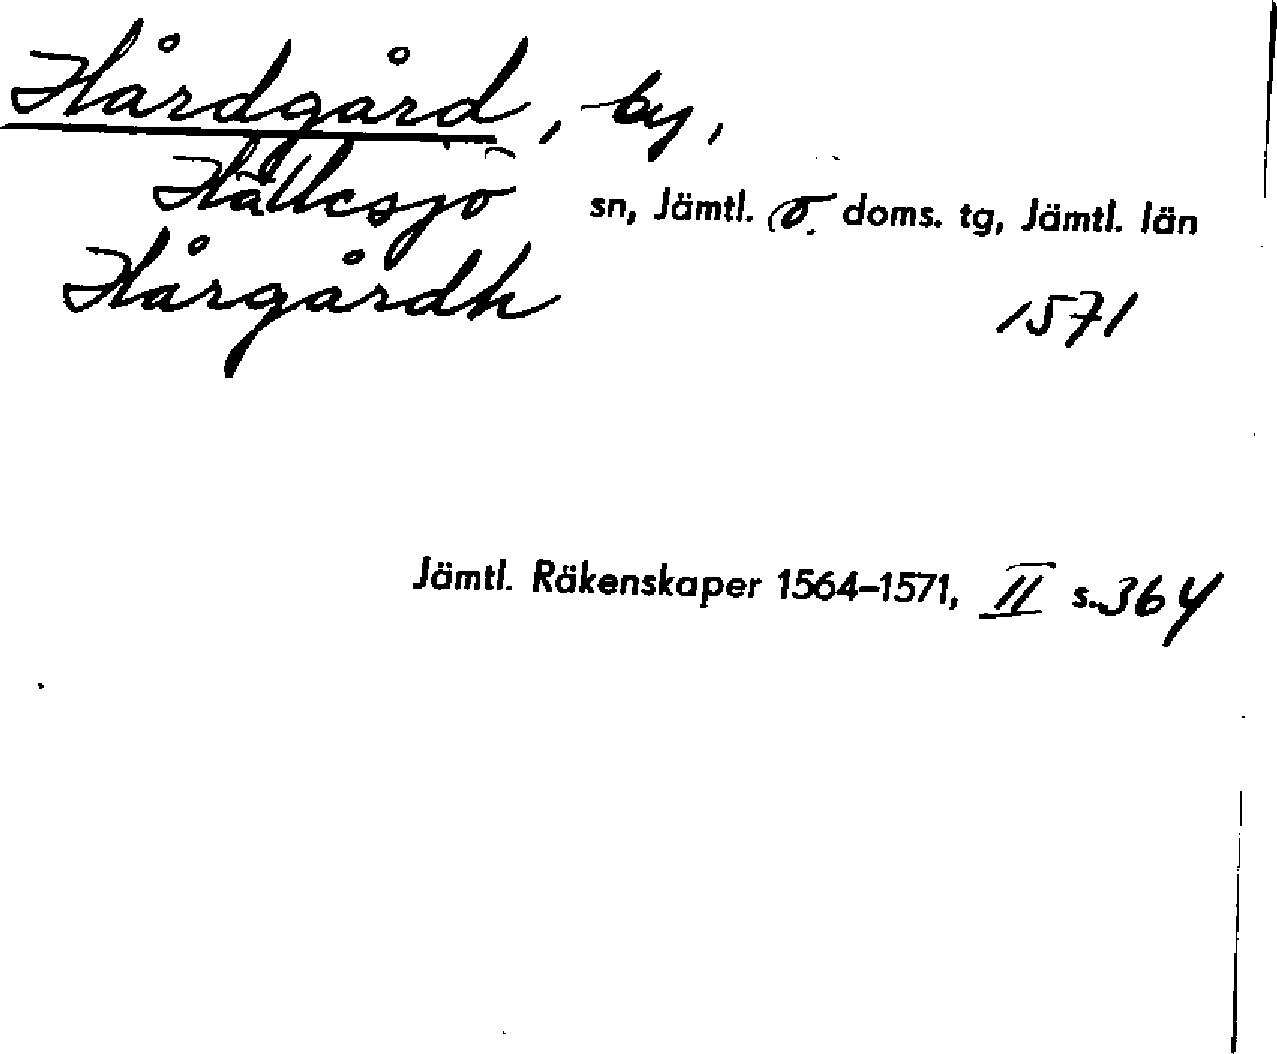 Hårdgård, by,
Hällesjö sn, Jämtl. ö. doms. tg, Jämtl. län
Hårgårdh 1571
Jämtl. Räkenskaper 1564–1571, II s. 364